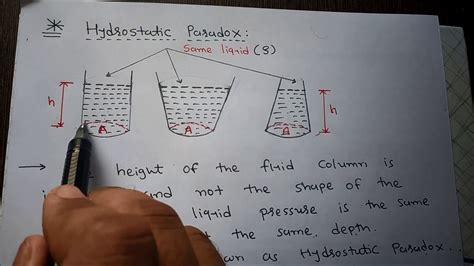 * Hydrostatic Paradox:
Same liquid (ρ)
h A A A h
→ height of the fluid Column is
and not the shape of the
liquid pressure is the same
the same depth.
as Hydrostatic Paradox...